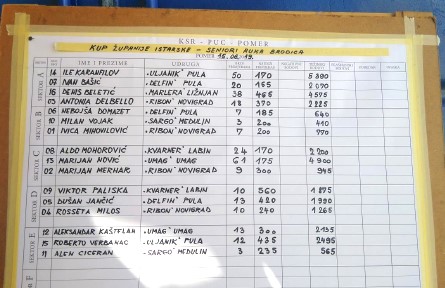 KSR - PUC - POMER
KUP ŽUPANIJE ISTARSKE - SENIORI RUKA BRODICA
POMER 15.06.19.
IME I PREZIME UDRUGA
SEKTOR A
16 ILE KARANFILOV "ULJANIK" PULA 50 170 5 880
07 IVAN BAŠIĆ "DELFIN" PULA 20 165 2 070
16 DENIS BELETIĆ "MARLERA" LIŽNJAN 38 465 4575
03 ANTONIA DELBELLO "RIBON" NOVIGRAD 18 370 2225
SEKTOR B
06 NEBOJŠA DOMAZET "DELFIN" PULA 7 185 640
10 MILAN VOJAK "SARGO" MEDULIN 3 200 410
01 IVICA MIHOVILOVIĆ "RIBON" NOVIGRAD 7 200 770
SEKTOR C
08 ALDO MOHOROVIĆ "KVARNER" LABIN 24 170 2 200
13 MARIJAN NOVIĆ "UMAG" UMAG 61 175 4 900
02 MARIJAN MERHAR "KVARNER" LABIN 9 300 945
SEKTOR D
09 VIKTOR PALISKA "KVARNER" LABIN 10 560 1 875
05 DUŠAN JANČIĆ "DELFIN" PULA 13 420 1 990
04 ROSSETA MILOS "RIBON" NOVIGRAD 10 240 1 265
SEKTOR E
12 ALEKSANDAR KAŠTELAN "UMAG" UMAG 13 300 2135
15 ROBERTO VERBANAC "ULJANIK" PULA 12 435 2495
11 ALEN CICERAN "SARGO" MEDULIN 3 235 565
F